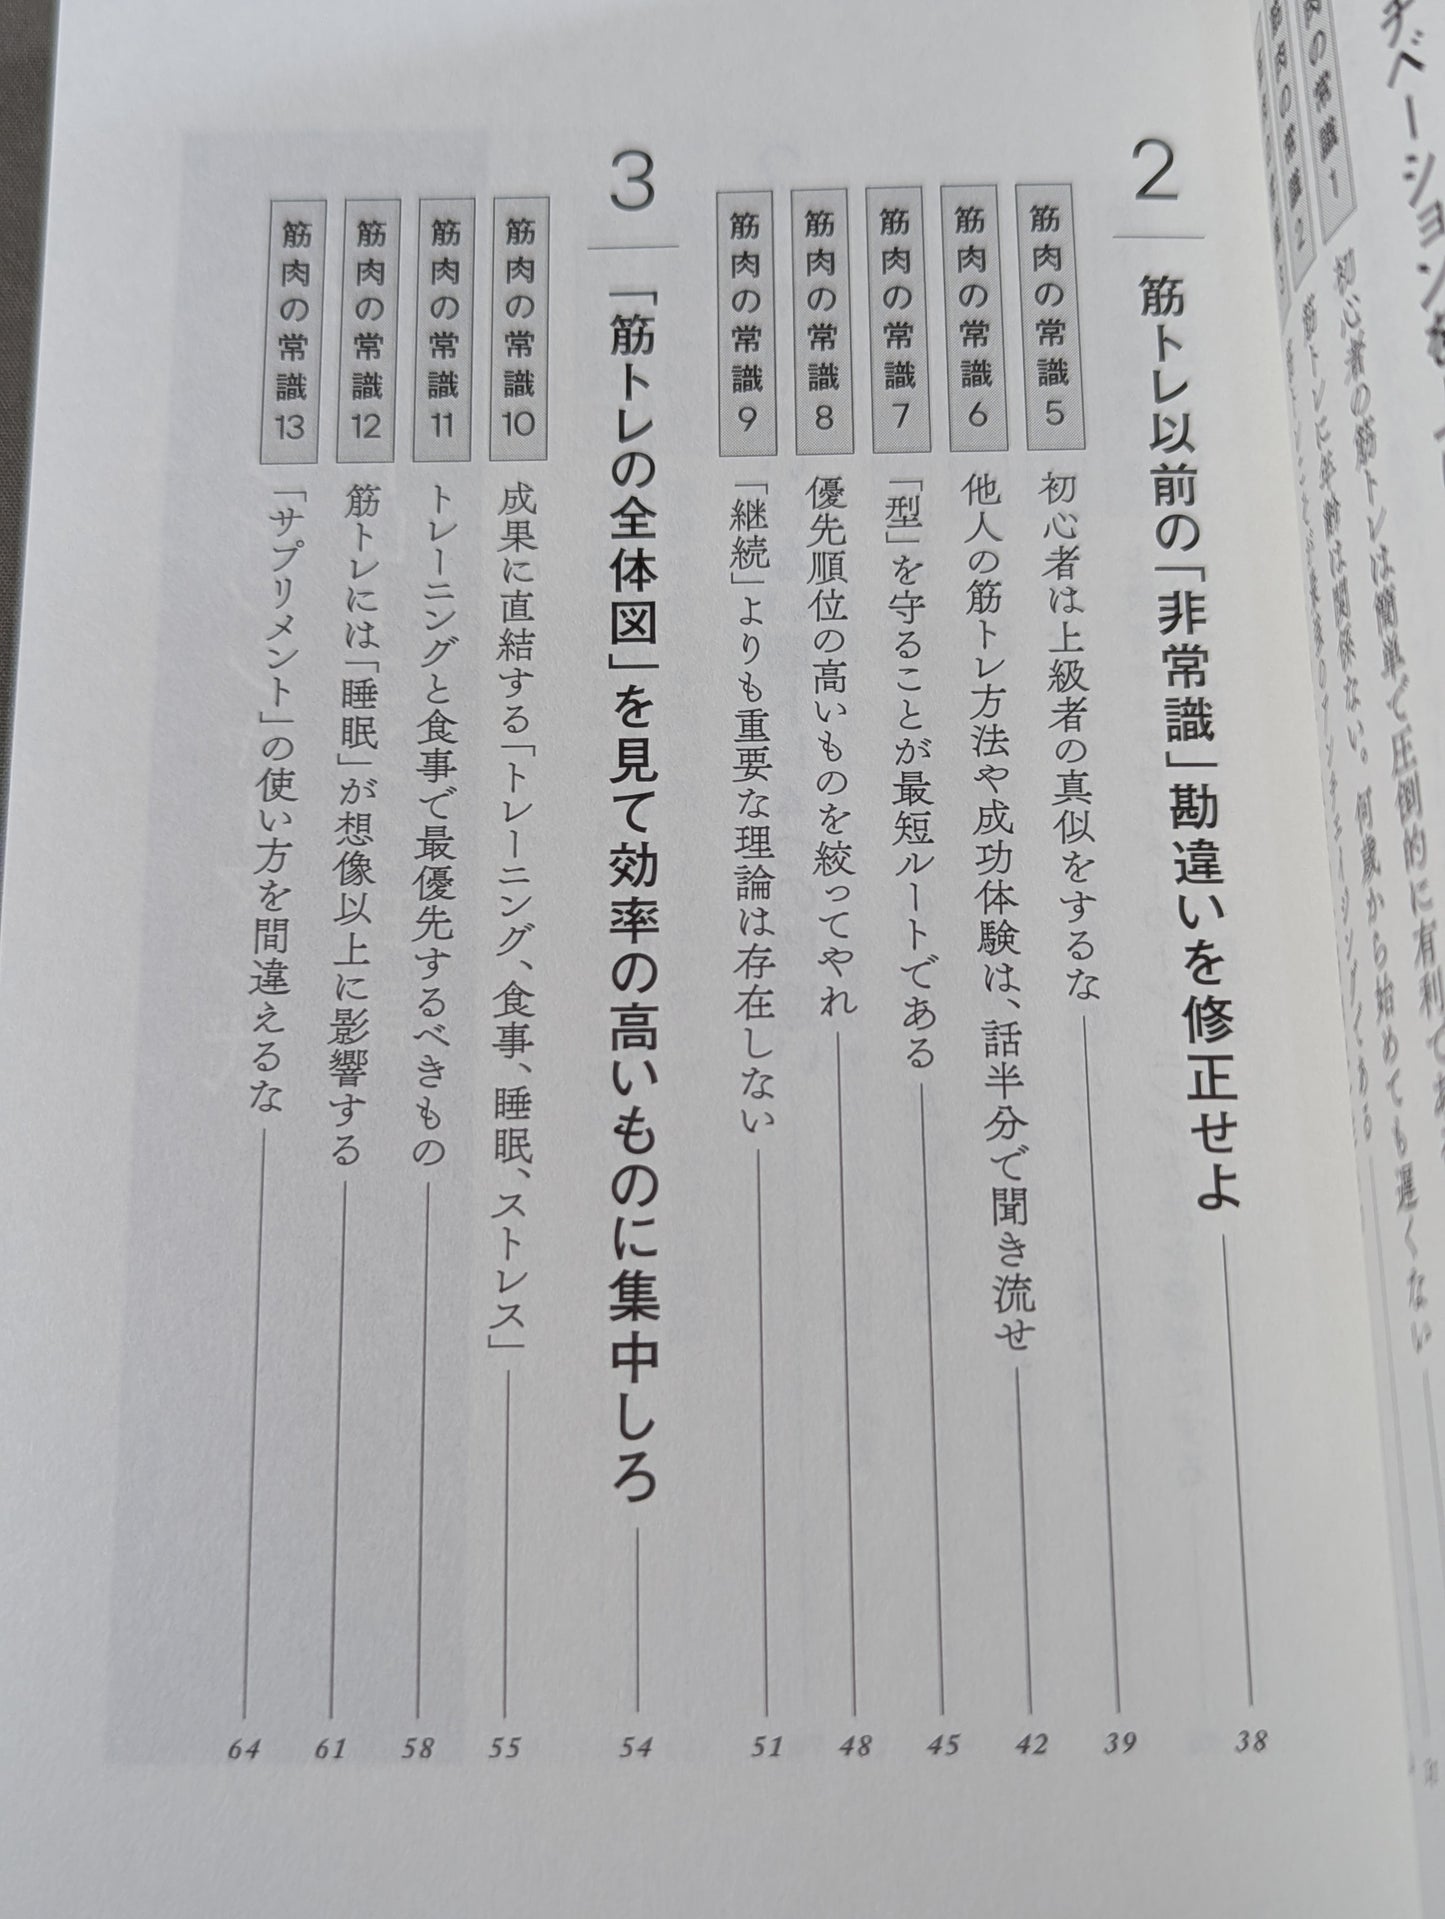 チベーション
筋肉の常識1 初心者の筋トレは簡単で圧倒的に有利で
筋肉の常識2 筋トレに年齢は関係ない。何歳から始めても遅くない
2 筋トレ以前の「非常識」勘違いを修正せよ 38
筋肉の常識5 初心者は上級者の真似をするな 39
筋肉の常識6 他人の筋トレ方法や成功体験は、話半分で聞き流せ 42
筋肉の常識7 「型」を守ることが最短ルートである 45
筋肉の常識8 優先順位の高いものを絞ってやれ 48
筋肉の常識9 「継続」よりも重要な理論は存在しない 51
3 「筋トレの全体図」を見て効率の高いものに集中しろ 54
筋肉の常識10 成果に直結する「トレーニング、食事、睡眠、ストレス」 55
筋肉の常識11 トレーニングと食事で最優先するべきもの 58
筋肉の常識12 筋トレには「睡眠」が想像以上に影響する 61
筋肉の常識13 「サプリメント」の使い方を間違えるな 64